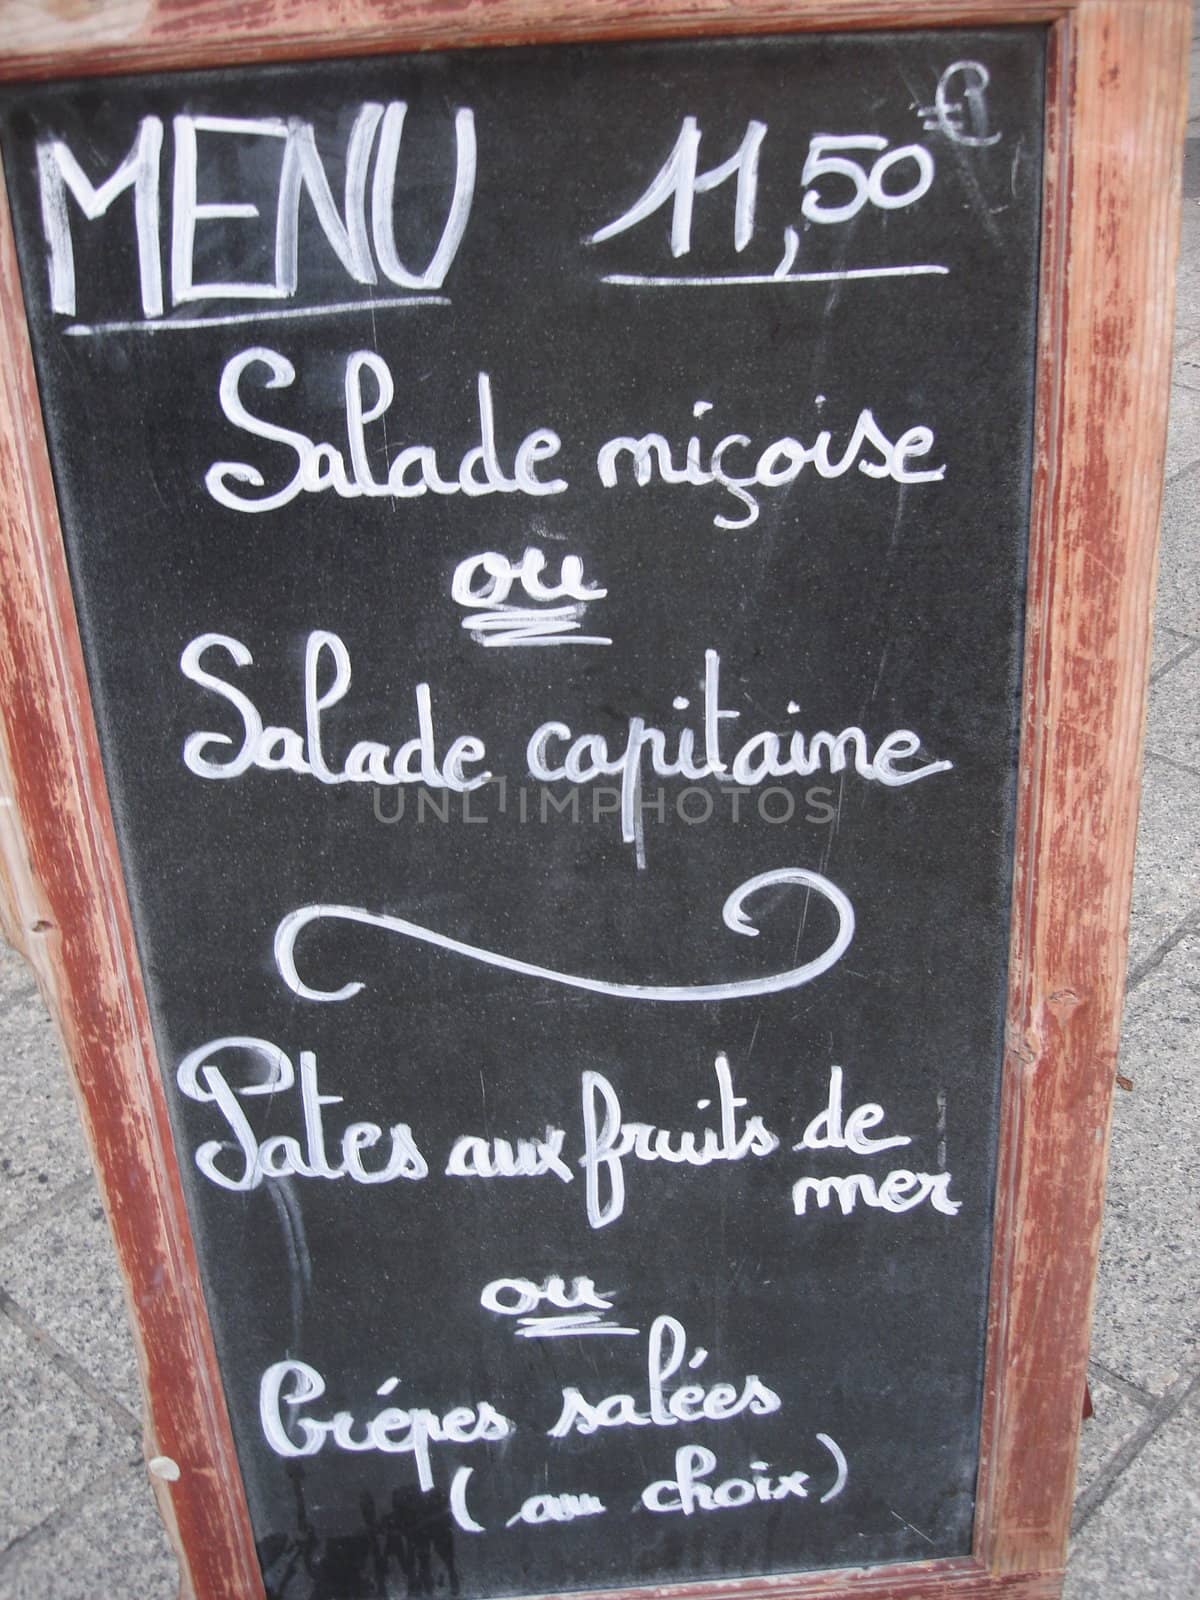 MENU 11,50 €
Salade niçoise
ou
Salade capitaine
UNLIMPHOTOS
Pates aux fruits de
mer
ou
Crépes salées
(au choix)